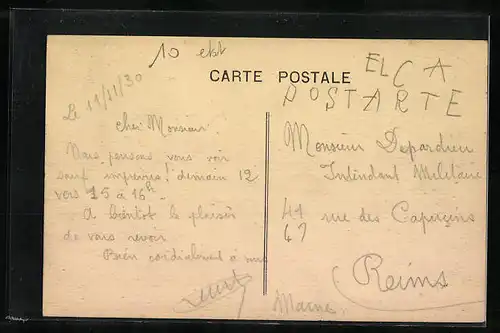 10
CARTE POSTALE
ELCA
POSTARTE
Le 11/11/30
Cher Monsieur.
Nous pensons vous voir
sauf imprévu, demain 12
vers 15 à 16h.
A bientôt le plaisir
de vous revoir
Bien cordialement à
Monsieur Depardieu
Intendant Militaire
41 rue des Capucins
47
Reims
Marne